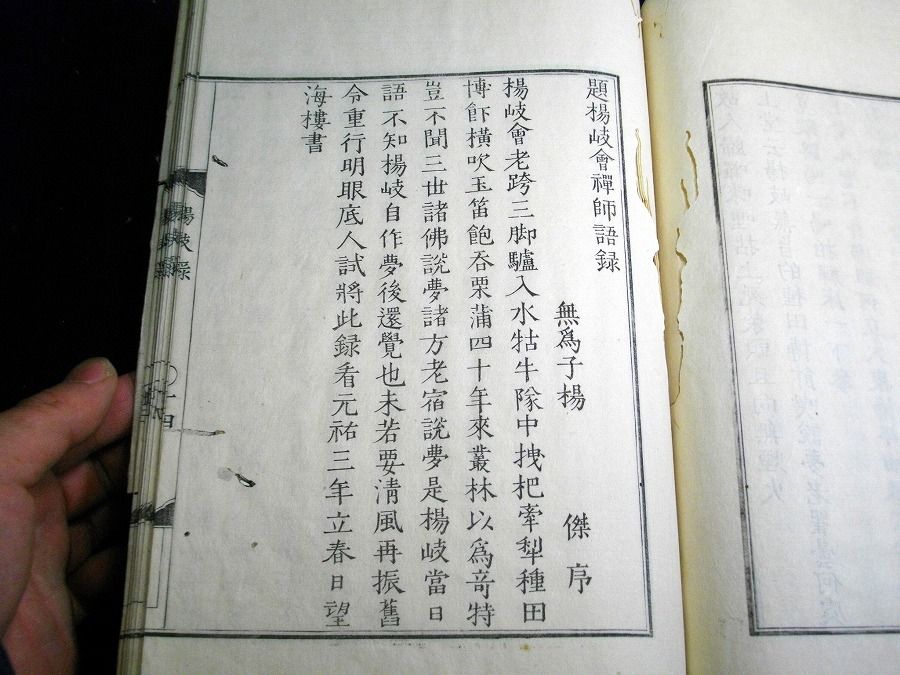 題楊岐會禪師語録
無爲子楊 傑 序
楊岐會老跨三脚驢入水牯牛隊中拽杷牽犁種田
博飰橫吹玉笛飽吞栗蒲四十年來叢林以爲竒特
豈不聞三世諸佛說夢諸方老宿說夢是楊岐當日
語不知楊岐自作夢後還覺也未若要清風再振舊
令重行明眼底人試將此録看元祐三年立春日望
海樓書
楊岐録